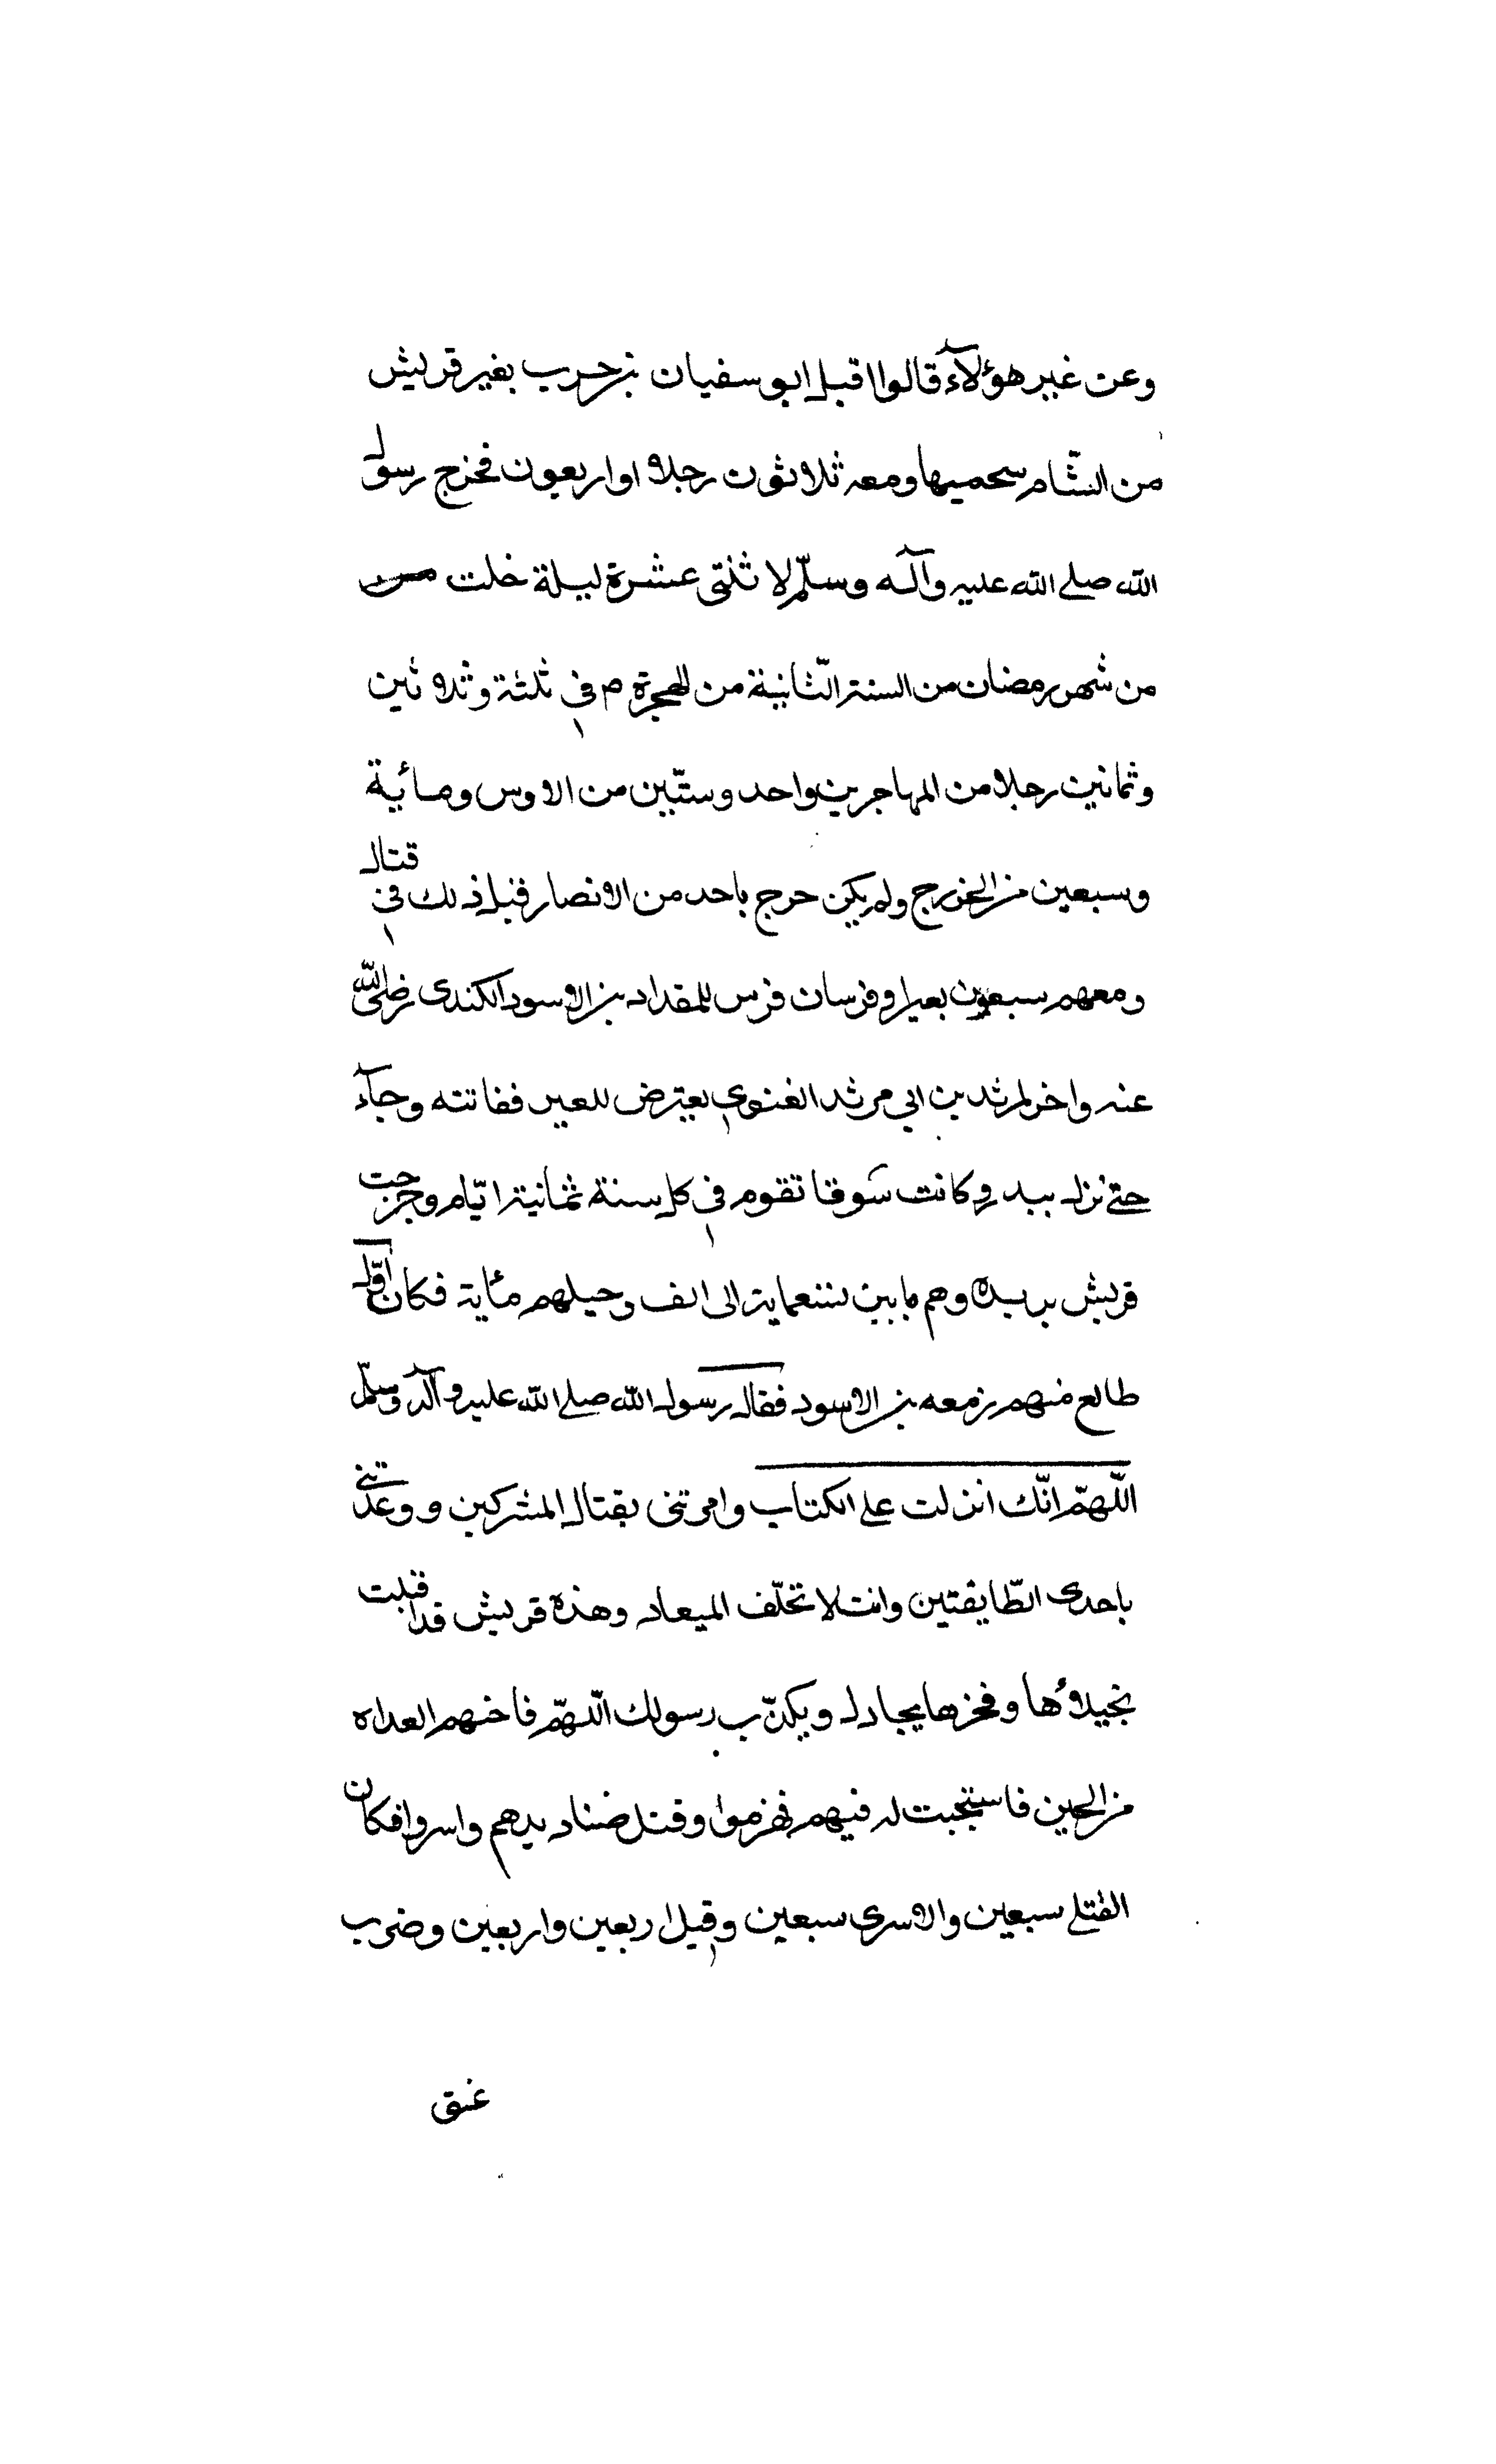 وعن غير هؤلآء قالوا اقبل ابو سفيان بن حرب بغير قريش
من الشّام سحميها ومعه ثلاثون رجلا او اربعون فخرج رسول
الله صلى الله عليه وآله وسلّم لاثنتى عشرة ليلة خلت
من شهر رمضان من السنة الثّانية من الهجرة م في ثلثة وثلاثين
وثمانين رجلا من المهاجرين واحد وستّين من الاوس ومائية
وسبعين من الخزرج ولم يكن خرج باحد من الانصار قبل ذلك في قتال
ومعهم سبعون بعيرا وفرسان فرس للمقداد بن الاسود الكندى رضي الله
عنه واخر لمرثد بن ابي مرثد الغنوي يعترض للعير ففاتته وجآء
حتى نزل ببدر وكانت سوقا تقوم في كل سنة ثمانية ايّام وخرجت
قريش بريده وهم مابين تسعماية الى الف وخيلهم مئاية فكان اوّل
طالع منهم زمعه بن الاسود فقال رسول الله صلى الله عليه وآله وسلّم
اللّهمّ انّك انزلت علي الكتاب وامرتنى بقتال المشركين ووعدتني
باحدى الطّايفتين وانت لا تخلّف الميعاد وهذه قريش قد اقبلت
بخيلاؤها وفخرها يجادل ويكذّب رسولك اللّهمّ فاحنهم الغداه
من الحين فاستجبت له فيهم فهزموا وقتل ضناديدهم واسروا فكان
القتلى سبعين والاسرى سبعين وقيل اربعين واربعين وضرب
عنق